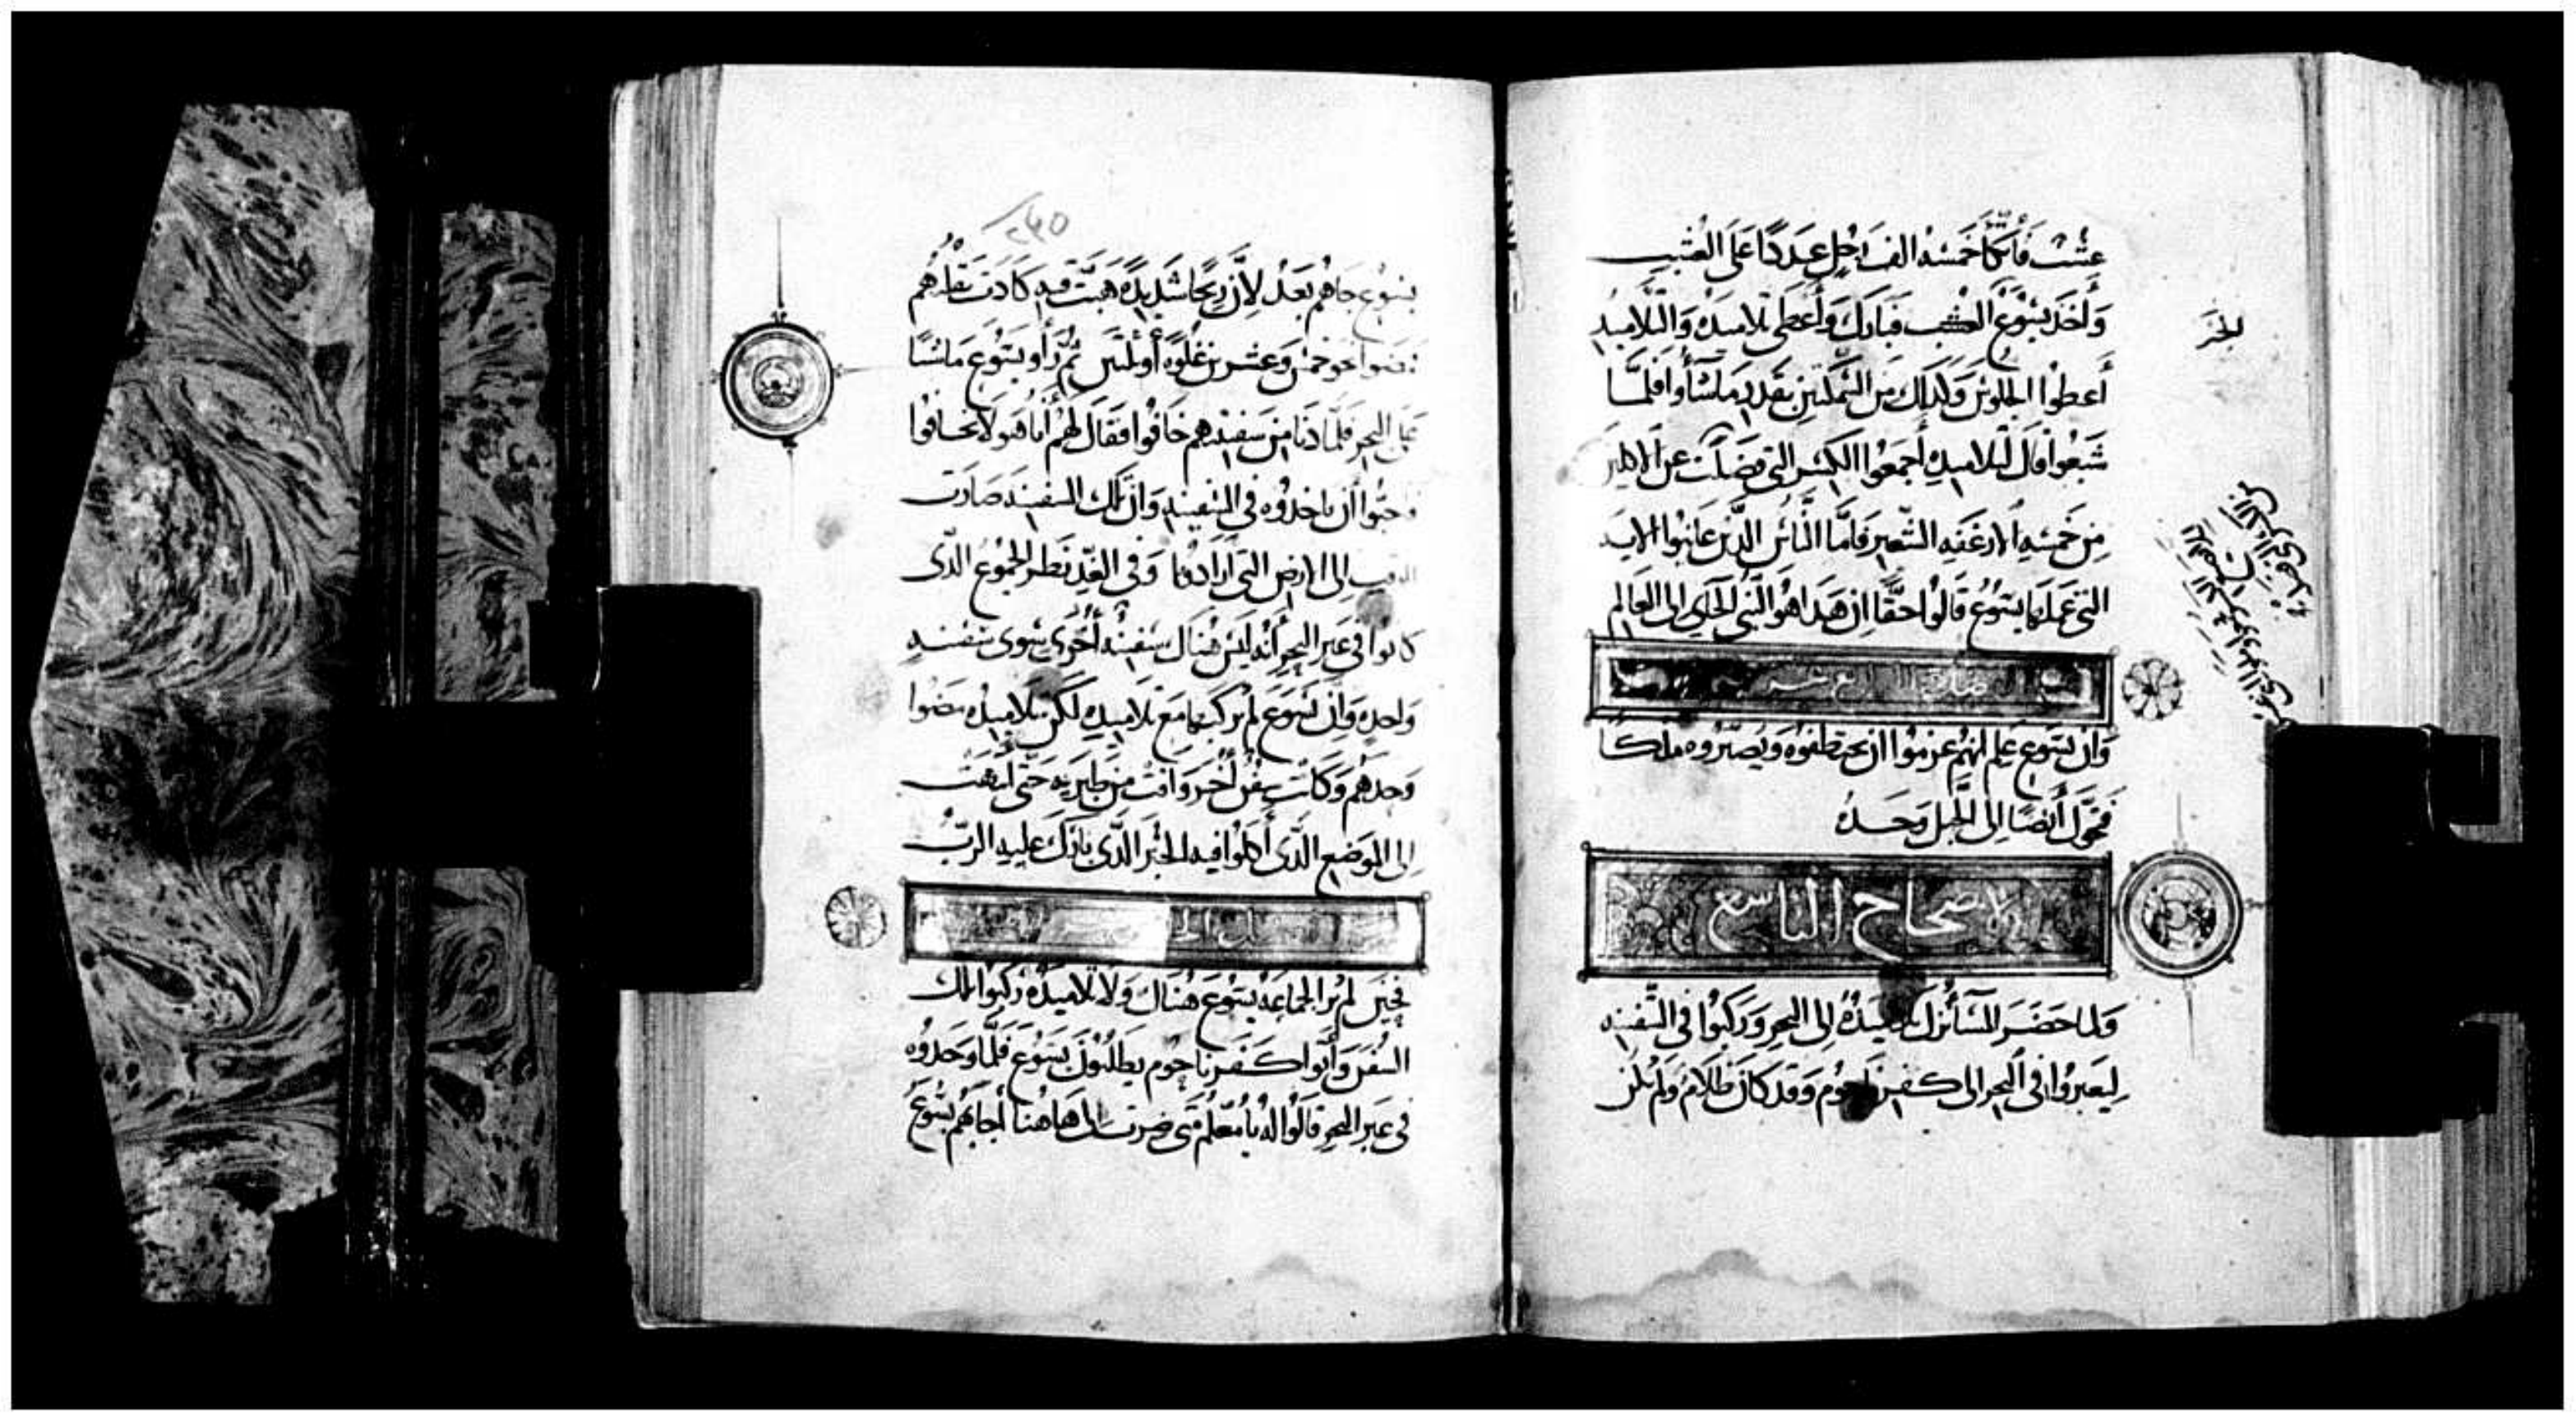 عشب فاتكا خمسة الف رجل عددًا على العشب
وَأخذ يَسُوع الخبز فبارك وَأعطى تلاميده وَالتلاميد
أعطوا الجلوس وَكدلك من السمكتين بقدر ما شاوا فلمــا
شبعوا قال لتلاميده أجمعوا الكسر التى فضلت عن الاكلين
من خمسة الارغفه الشعير فاما الناس الدين عاينوا الايه
التى عملها يسوع قالوا حقًا ان هدا هو النبى الجاى الى العالم
وان يسوع علم انهم عزموا ان يختطفوه ويصيروه ملكًا
فتحول أيضًا الى الجبل وَحــده
الاصحاح التاسع
وَلما حضر المسا نزل تلاميده الى البحر وَركبوا فى السفينه
ليعبروا فى البحر الى كفرناحوم وَقد كان ظلام وَلم يكن
الخبز
٢٤٥
يسوع جاهم بعد لأن ريحًا شديدة هبت فيه كادت تقلبهم
فمضوا نحو خمس وَعشرين غلوه أو ثلثين ثم رأوا يسوع ماشيًا
على البحر فلما دنا من سفينتهم خافوا فقال لهم أنا هو لا تخـافوا
فاحبوا أن ياخدوه فى السفينه وَان تلك السفينه صارت
الى الارض التى ارادوها وَفى الغد نظر الجموع الدى
كانوا فى عبر البحر أنه ليس هناك سفينه أخرى سوى سفينـه
وَاحده وَان يسوع لم يركبها مع تلاميده لكن تلاميده مضوا
وَحدهم وَكانت سفن أخر وَافت من طبريه حتى انتهت
الى الموضع الدى أكلوا فيه الخبز الدى بارك عليه الرب
فحين لم ير الجماعه يسوع هناك وَلا تلاميده ركبوا تلك
السفن وَأتوا كـفرناحوم يطلبون يسوع فلما وَجدوه
فى عبر البحر قالوا له يا معلم متى صرت الى هاهنا أجابهم يسوع